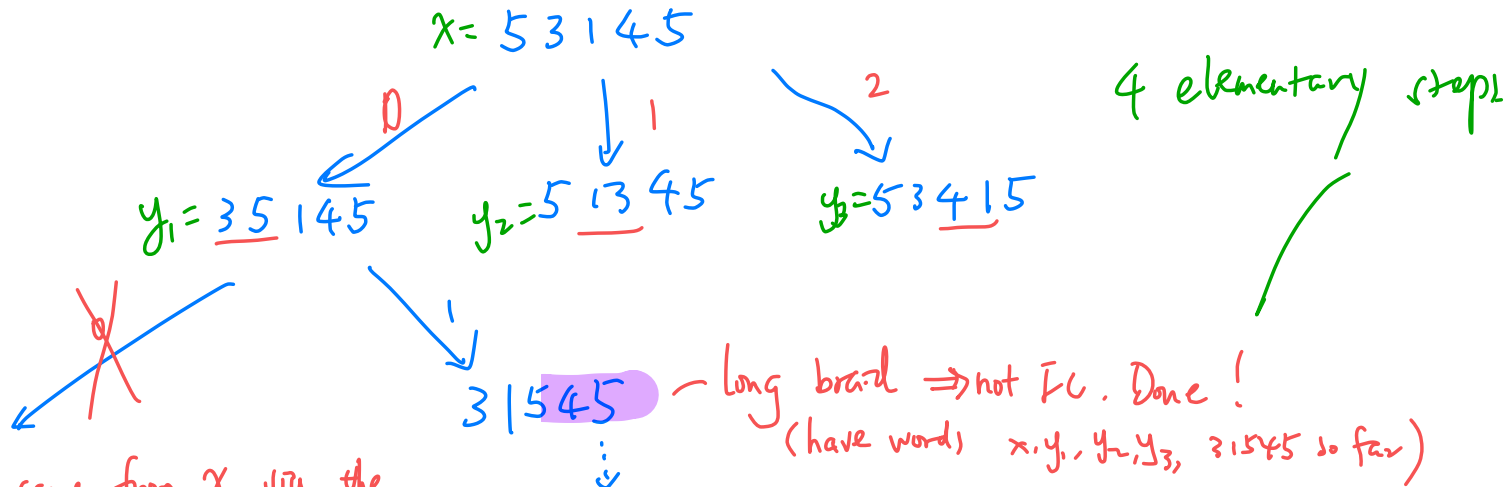 x= 53145
4 elementary steps
0 1 2
y₁= 35145 y₂=51345 y₃=53415
0 1
31545 long braid ⇒ not FC. Done!
(have words x, y₁, y₂, y₃, 31545 so far)
from x the